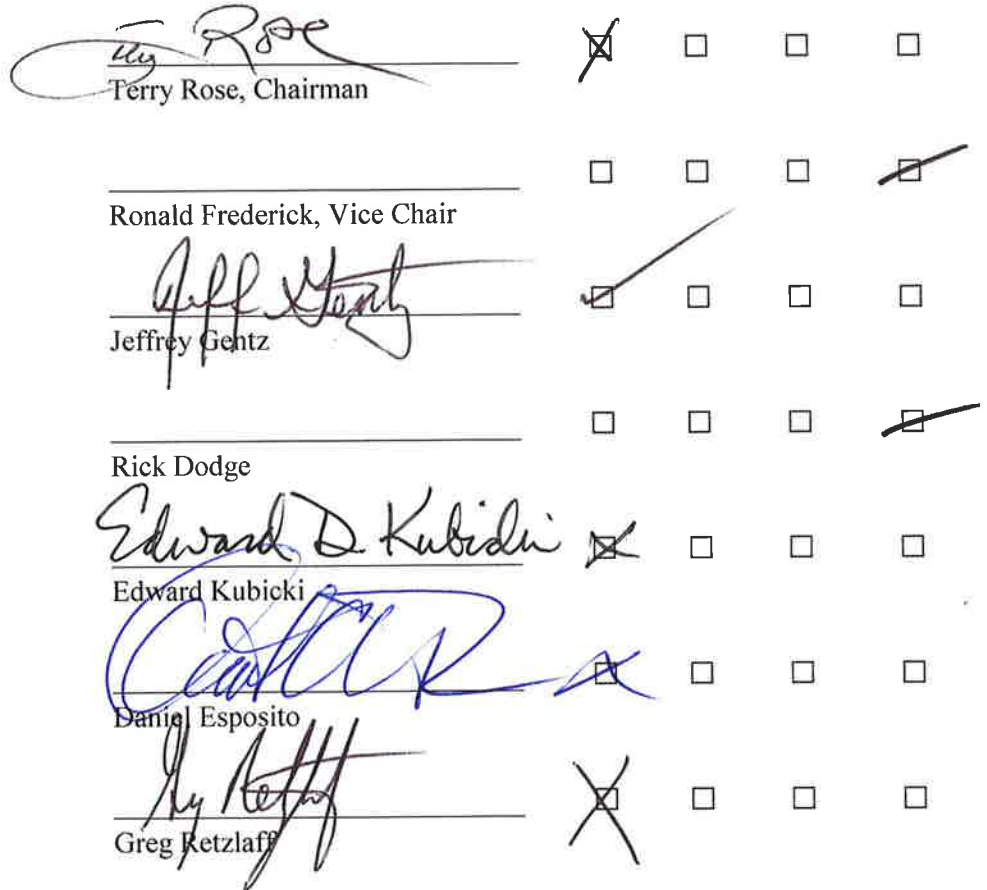 Rose
Terry Rose, Chairman
Ronald Frederick, Vice Chair
Jeff Gentz
Jeffrey Gentz
Rick Dodge
Edward D. Kubicki
Edward Kubicki
Daniel Esposito
Greg Retzlaff